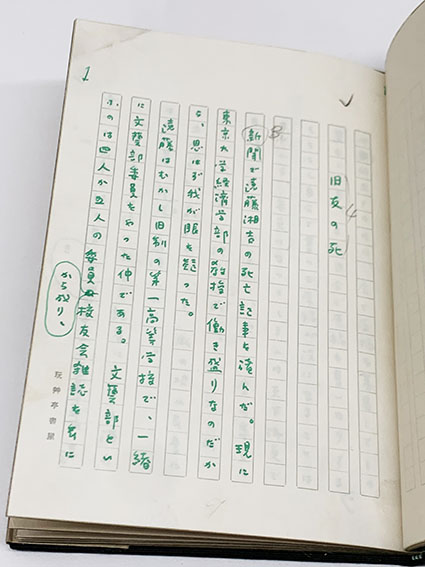 旧友の死
4
8
新聞で遠藤湘吉の死亡記事を読んだ。現に
東京大学経済学部の教授で働き盛りなのだか
ら、思はず我が眼を疑つた。
遠藤はむかし旧制の第一高等学校で、一緒
に文藝部委員をやつた仲である。文藝部とい
ふのは四人か五人の委員から成り、校友会雑誌を年に
1
玩艸亭書屋